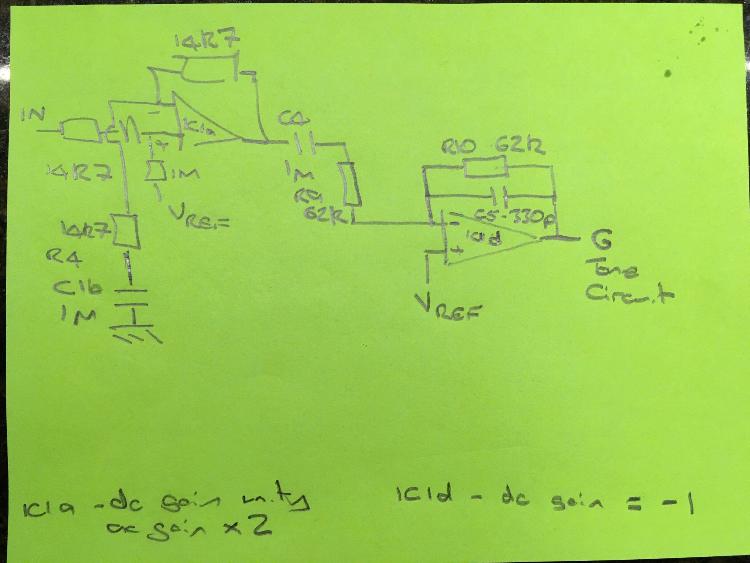 14R7
IN
IC1a
C4
14R7
1M
1M
VREF
R9
62k
R10 62k
C5 330p
IC1d
G
Tone
Circuit
VREF
14R7
R4
C16
1M
IC1a - dc gain unity
ac gain x2
IC1d - dc gain = -1